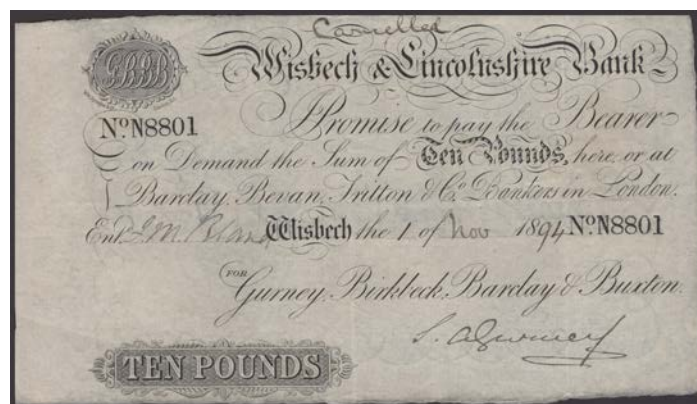 Cancelled
GBBB
Wisbech & Lincolnshire Bank
No. N8801
Promise to pay the Bearer
on Demand the Sum of Ten Pounds, here, or at
Barclay, Bevan, Tritton & Co. Bankers in London.
Entd.
Wisbech the 1 of Nov 1894 No. N8801
FOR
Gurney, Birkbeck, Barclay & Buxton.
S. A Gurney
TEN POUNDS